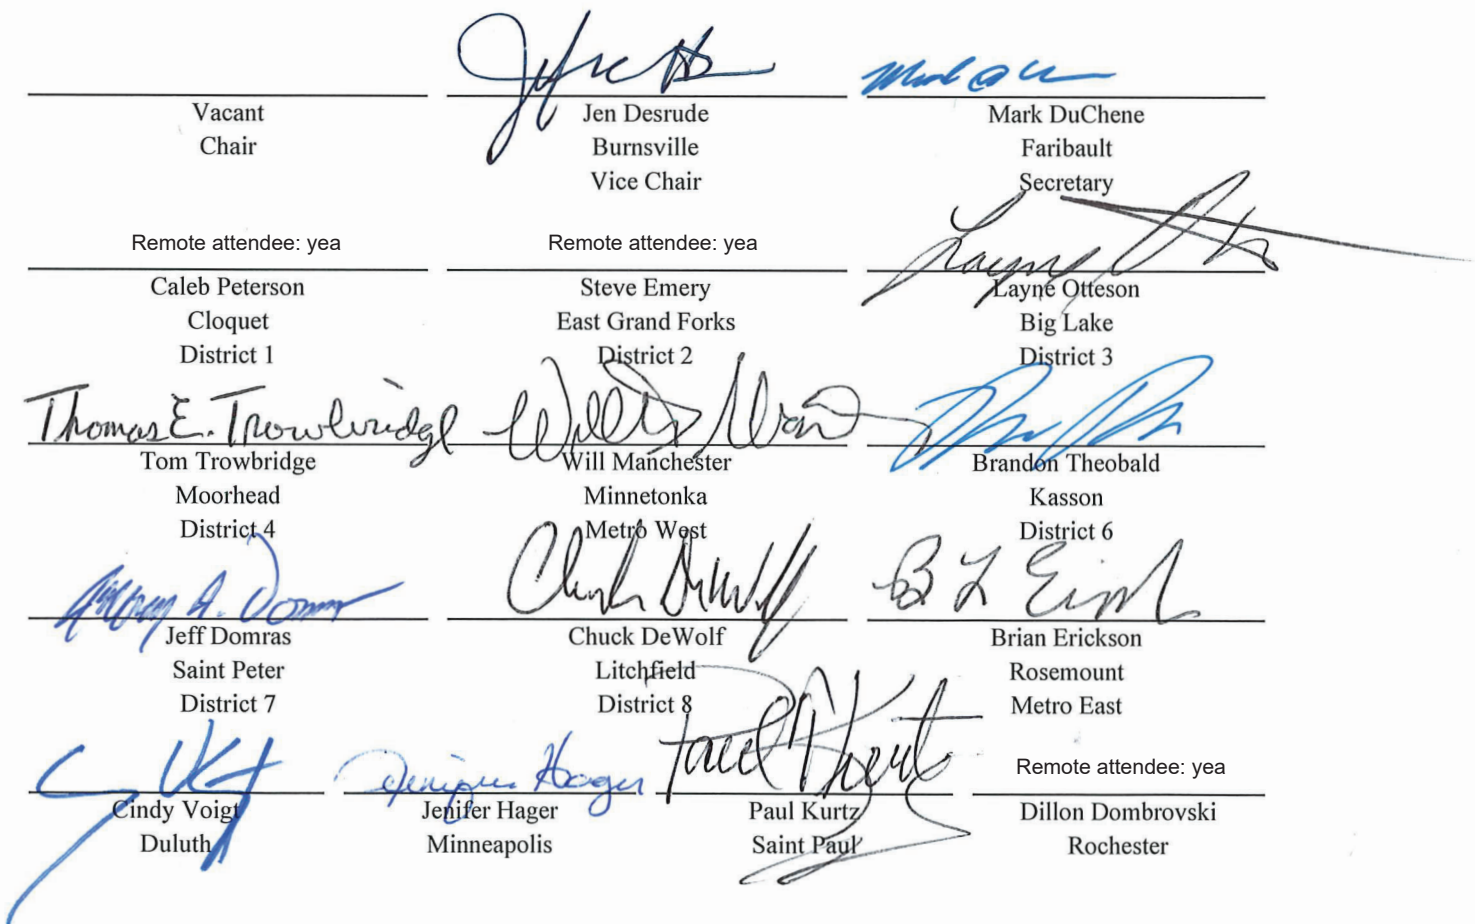 Vacant
Chair
Jen Desrude
Burnsville
Vice Chair
Mark DuChene
Faribault
Secretary
Remote attendee: yea
Caleb Peterson
Cloquet
District 1
Remote attendee: yea
Steve Emery
East Grand Forks
District 2
Layne Otteson
Big Lake
District 3
Thomas E. Trowbridge
Tom Trowbridge
Moorhead
District 4
Will Manchester
Minnetonka
Metro West
Brandon Theobald
Kasson
District 6
Jeff Domras
Saint Peter
District 7
Chuck DeWolf
Chuck DeWolf
Litchfield
District 8
Brian Erickson
Rosemount
Metro East
Cindy Voigt
Duluth
Jenifer Hager
Jenifer Hager
Minneapolis
Paul Kurtz
Paul Kurtz
Saint Paul
Remote attendee: yea
Dillon Dombrovski
Rochester